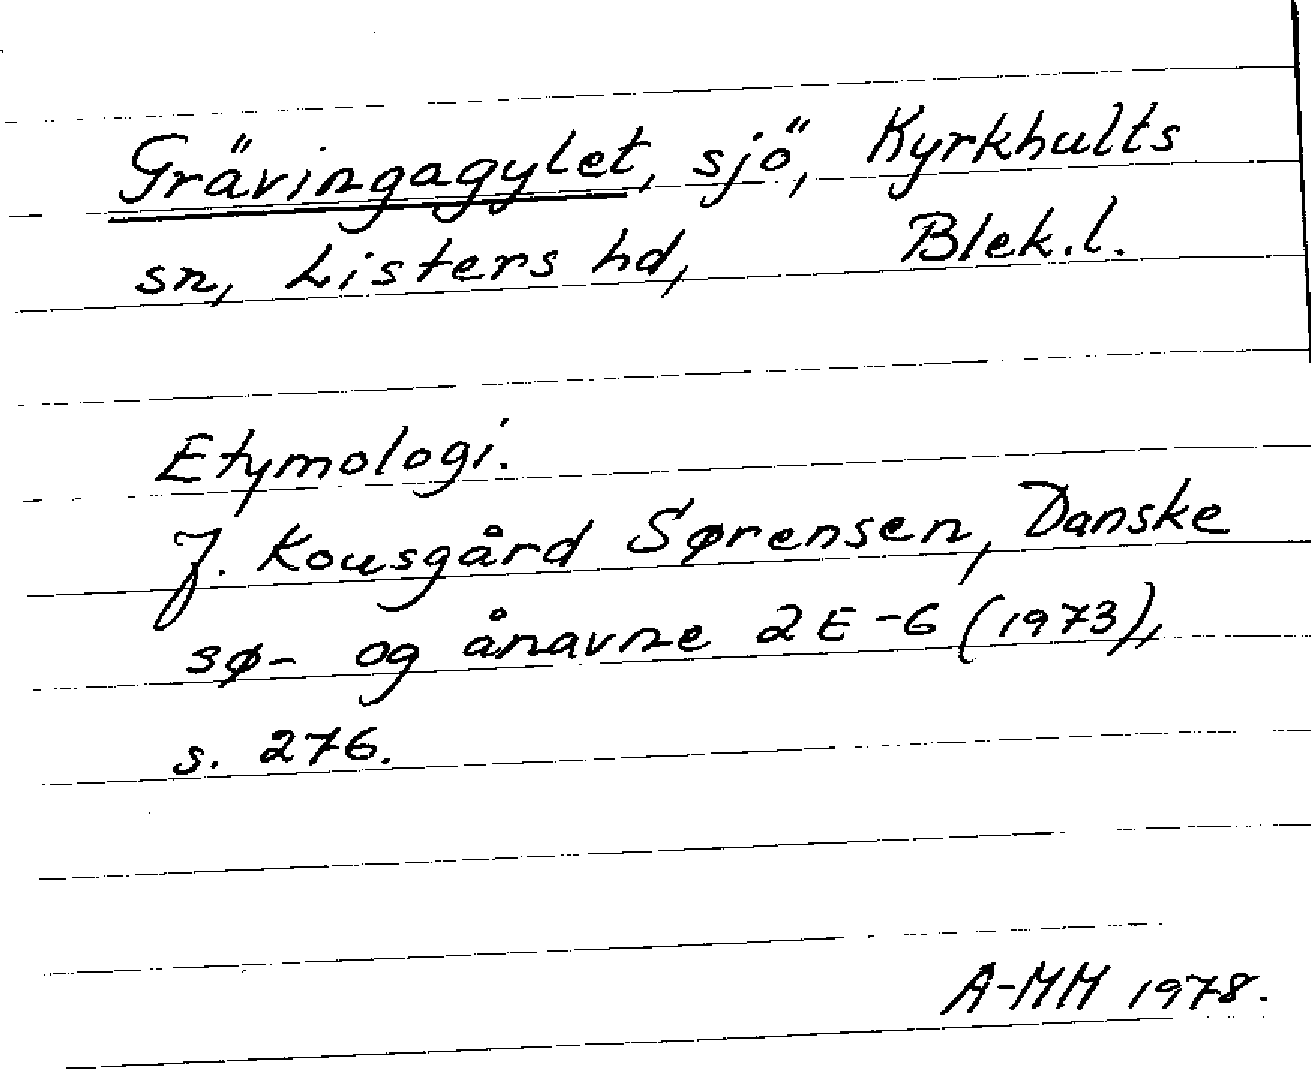 Grävingagylet, sjö, Kyrkhults
sn, Listers hd, Blek.l.
Etymologi.
J. Kousgård Sørensen, Danske
sø- og ånavne 2 E-G (1973),
s. 276.
A-MM 1978.